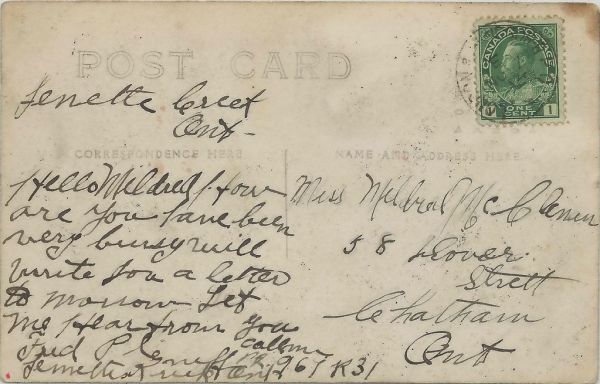 POST CARD
CANADA POSTAGE
ONE CENT
1 1
Jenette Creek
Ont-
CORRESPONDENCE HERE
NAME AND ADDRESS HERE
Hello Mildred How
are you I ave been
very bursy will
write you a letter
to morrow Let
me Hear from you
Fred P
Ont
R31
Miss Mildred Mc
58
Street
Chatham
Ont